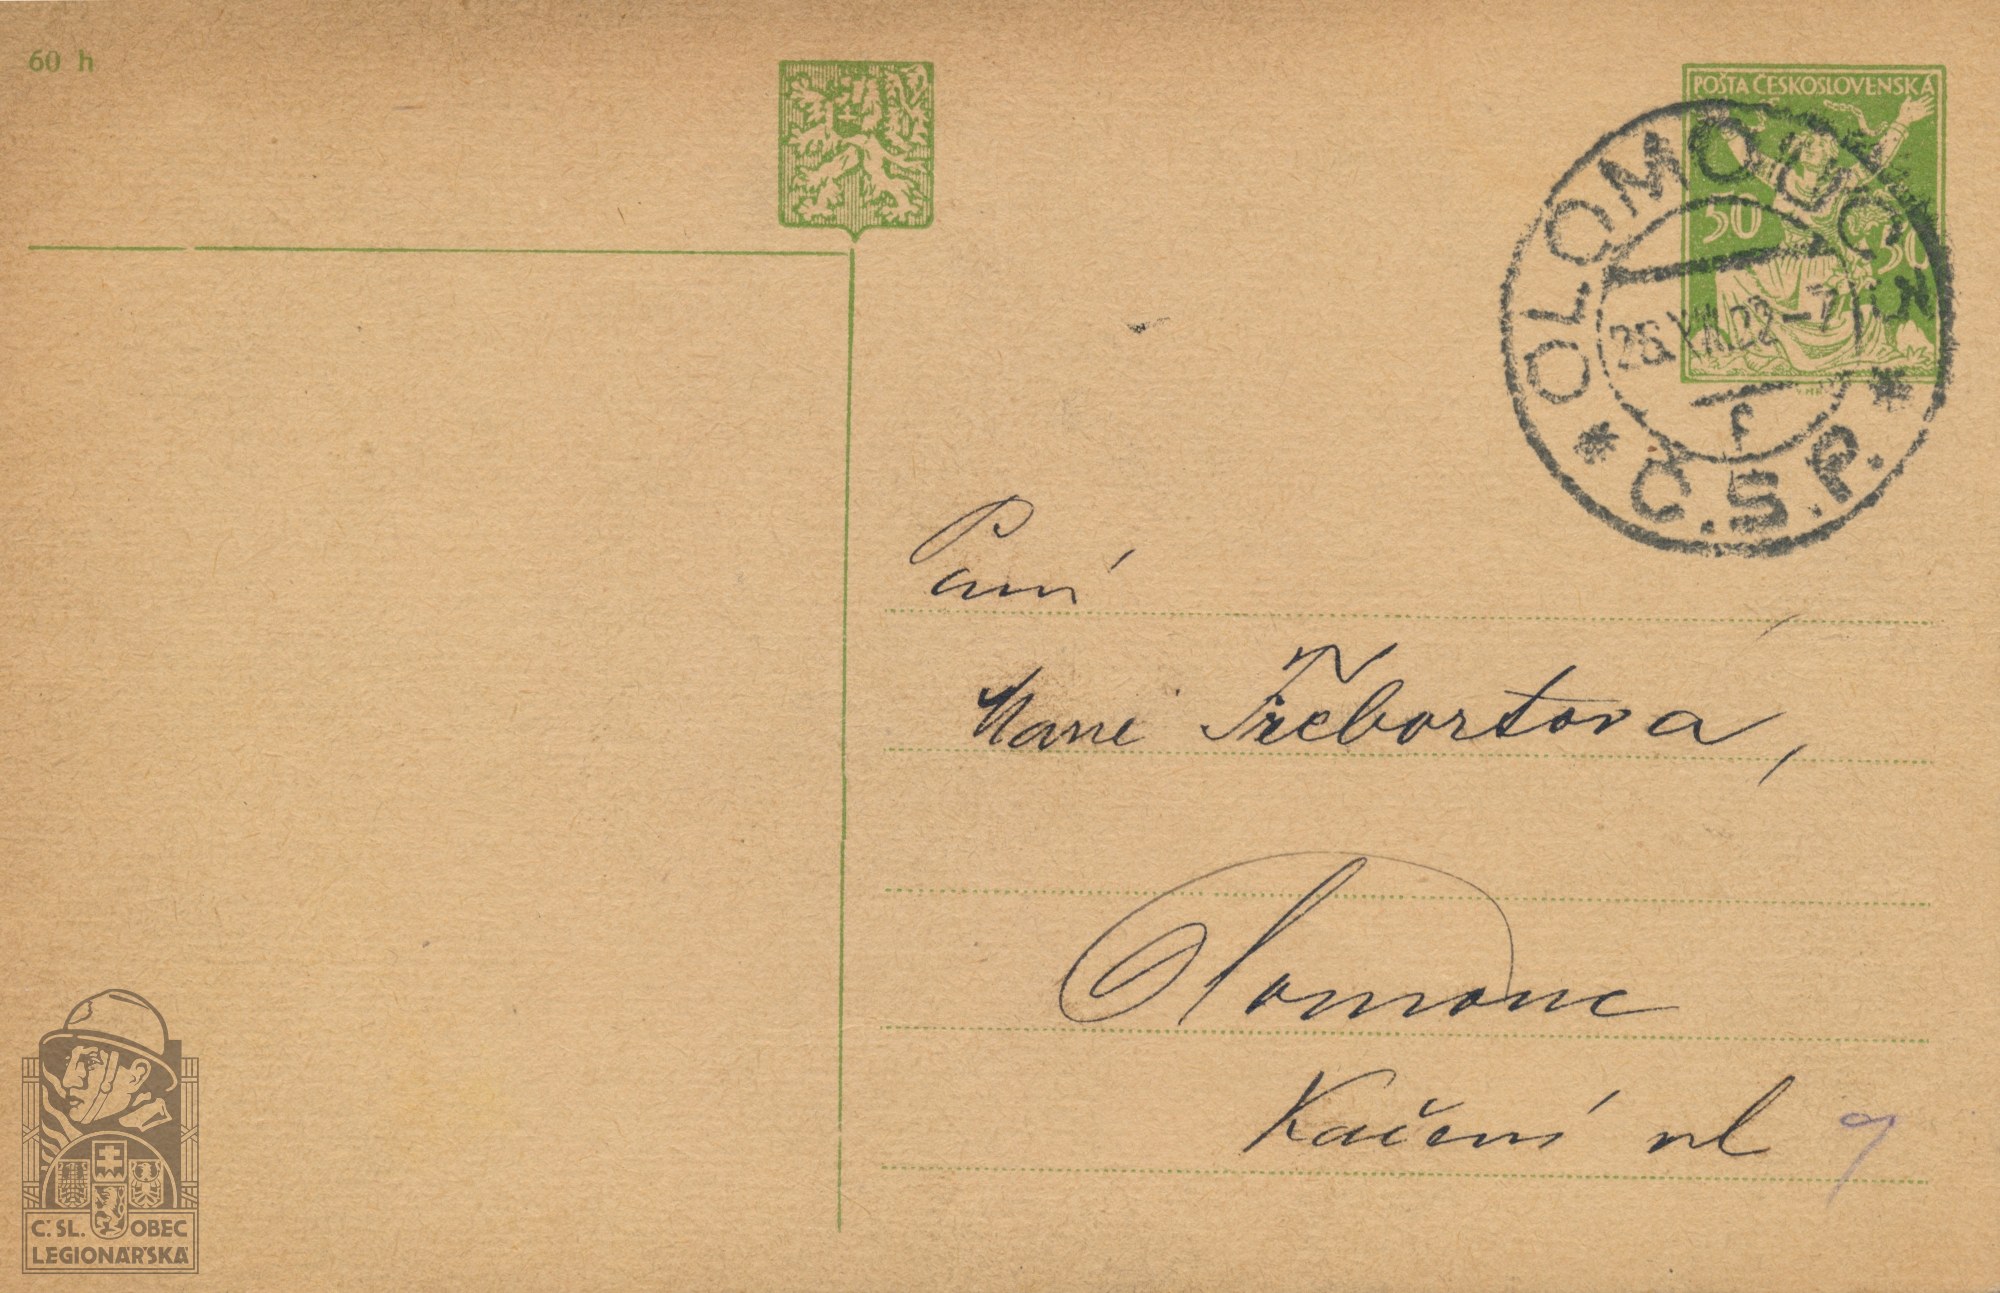 60 h
POŠTA ČESKOSLOVENSKÁ
50 50
OLOMOUC 3
26.XII.22-7
f
* Č.S.P. *
Paní
Marie Třebortová,
Olomouc
Kačení ul 7
Č.SL. OBEC
LEGIONÁŘSKÁ